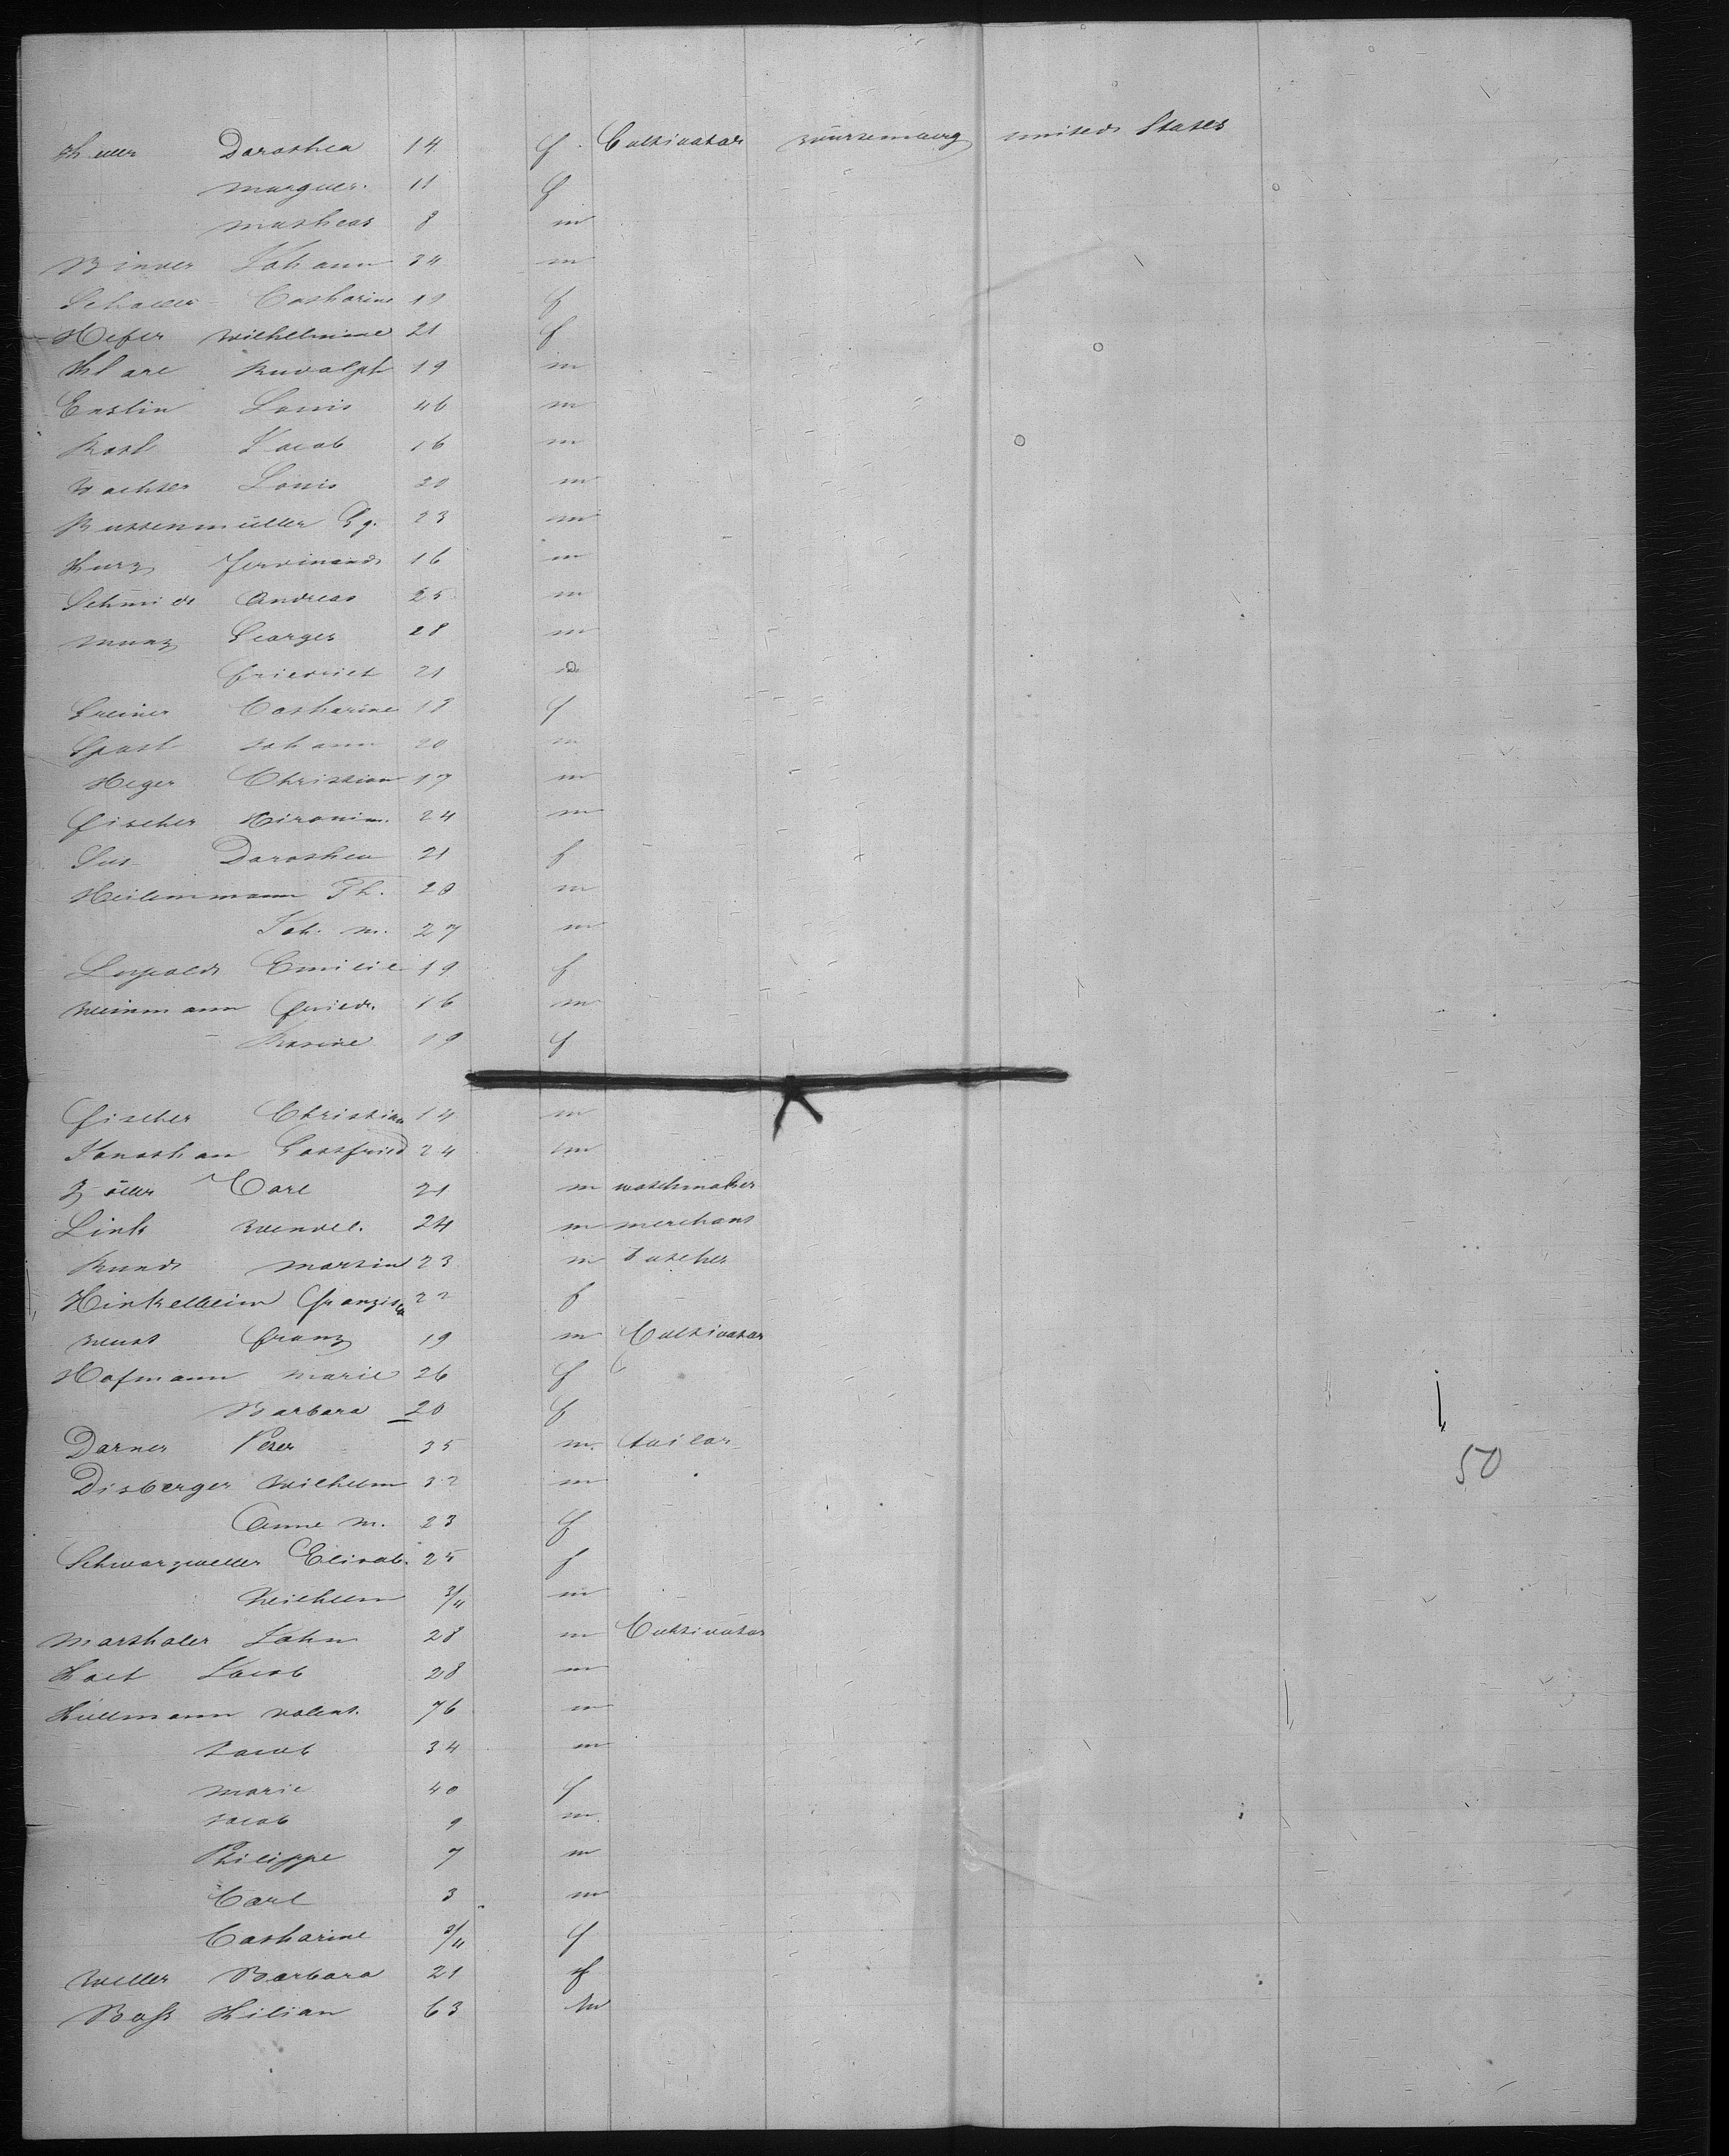 Dorothea 14 f Cultivator Würtemberg United States
Marguer. 11 f
Matheas 8 m
Binder Johann 34 m
Schaller Catharine 19 f
Hefer Wilhelmine 21 f
Klare Rudolph 19 m
Enslin Louis 46 m
Jacob 16 m
Wachter Louis 30 m
Gg. 23 m
Kurz Ferdinand 16 m
Schmidt Andreas 25 m
Munz Georges 28 m
Friedrich 21 m
Greiner Catharine 18 f
Johann 20 m
Heger Christian 17 m
Fischer Hironim. 24 m
Dorothea 21 f
Heilemmann Th. 28 m
Joh. M. 27 m
Luppold Emilie 19 f
Weinmann Friedr. 16 m
Rosine 19 f
Fischer Christian 14 m
Jonathan Gottfried 24 m
Zöller Carl 21 m watchmaker
Link Wendel. 24 m merchant
Kund Martin 23 m butcher
Hinkelbein Franziska 22 f
Wust Franz 19 m Cultivator
Hofmann Marie 26 f
Barbara 20 f
Darner Peter 35 m. tailor
Disberger Wilhelm 32 m 50
Anne M. 23 f
Schwarzweller Elisab. 25 f
Wilhelm 3/11 m
Marthaler John 28 m Cultivator
Jacob 28 m
Hillmann Valent. 76 m
Jacob 34 m
Marie 40 f
Jacob 9 m
Philippe 7 m
Carl 3 m
Catharine f
Weller Barbara 21 f
Boss Kilian 63 m